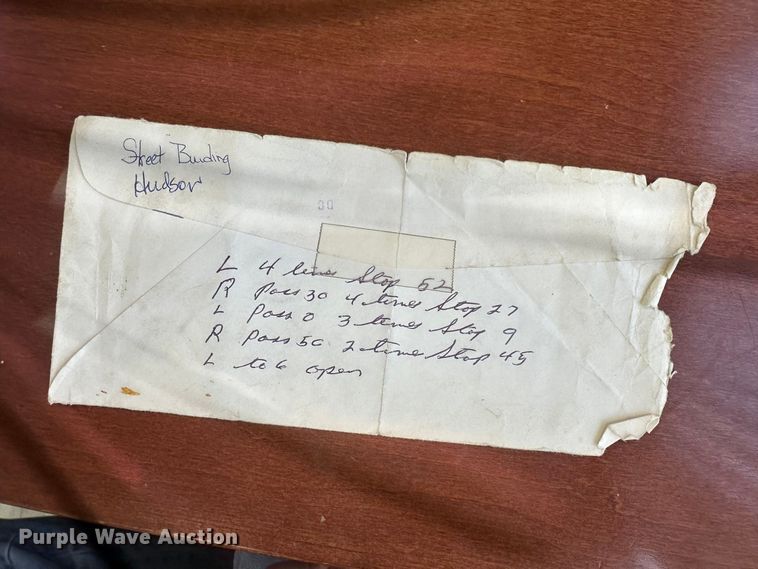 Street Building
Hudson
00
L 4 times Stop 52
R Pass 30 4 times Stop 27
L Pass 0 3 times Stop 9
R Pass 50 2 time Stop 45
L to 6 open
Purple Wave Auction